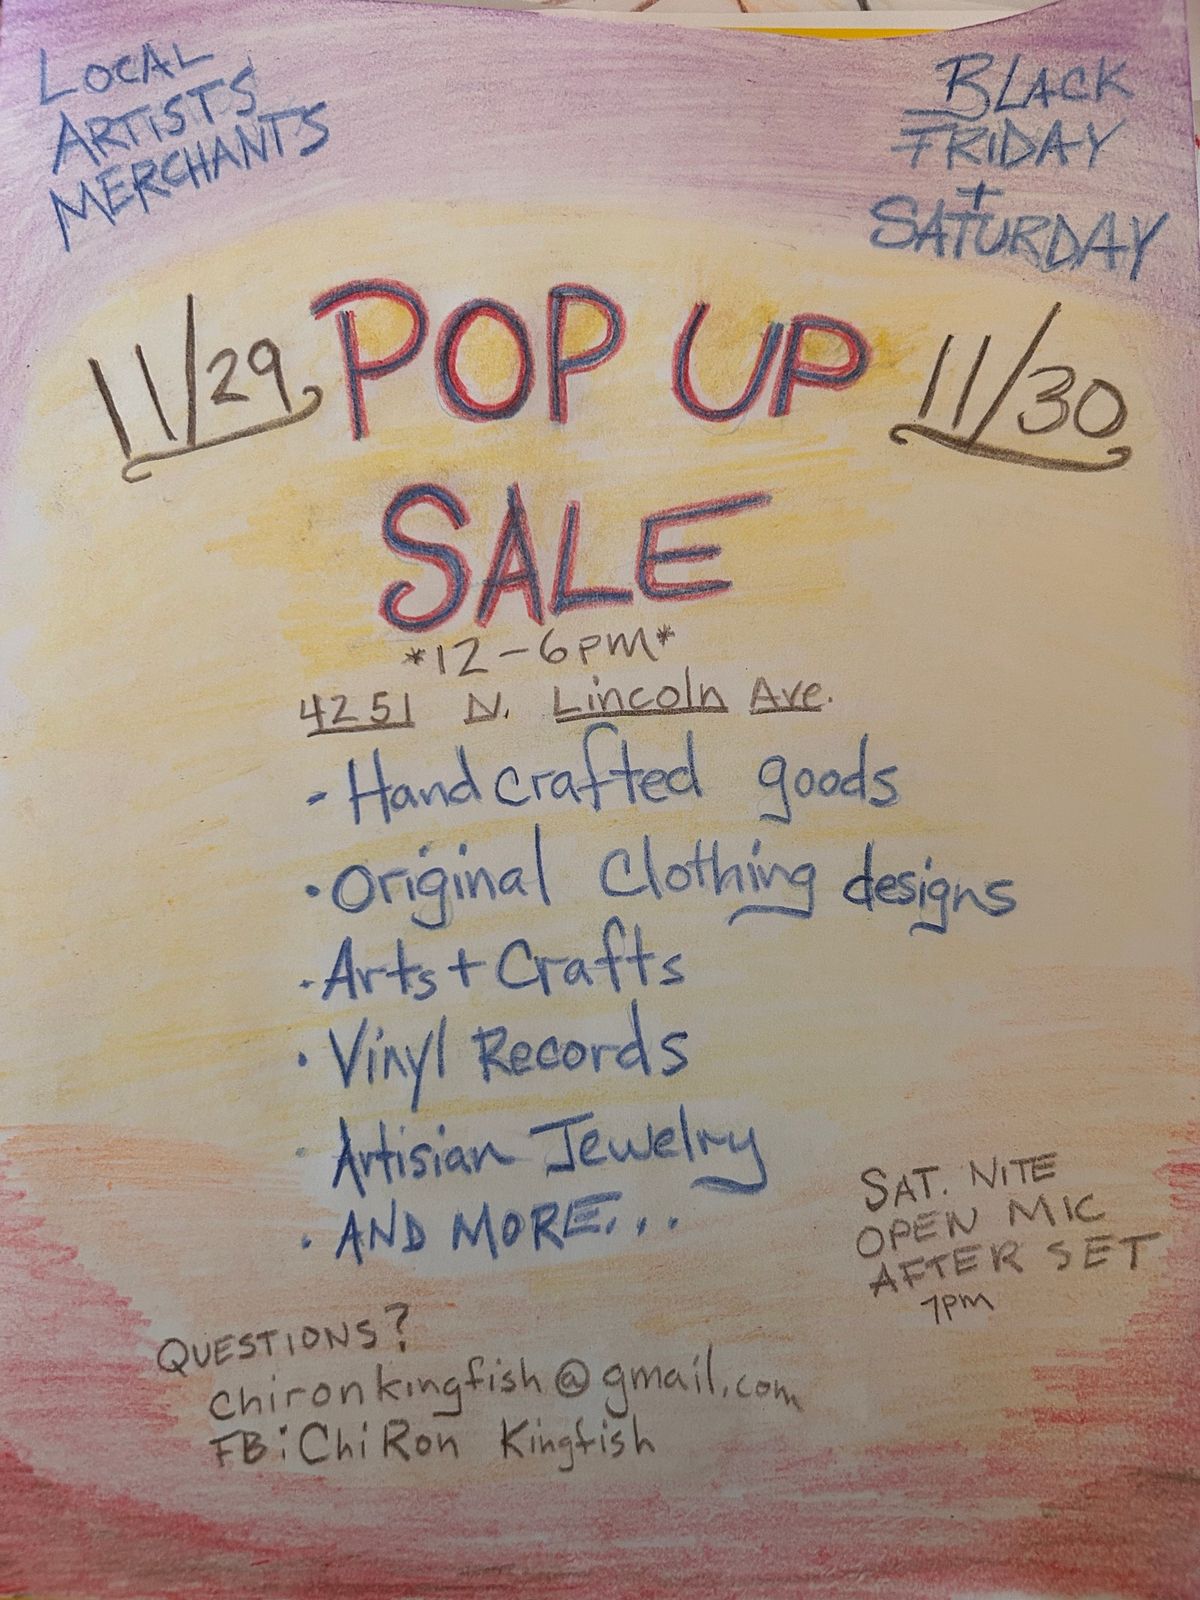 LOCAL
ARTISTS
MERCHANTS
BLACK
FRIDAY
+
SATURDAY
11/29 POP UP 11/30
SALE
*12-6pm*
4251 N. Lincoln Ave.
- Handcrafted goods
• Original Clothing designs
• Arts + Crafts
• Vinyl Records
• Artisian Jewelry
• AND MORE...
SAT. NITE
OPEN MIC
AFTER SET
7pm
QUESTIONS?
chironkingfish@gmail.com
FB: ChiRon Kingfish